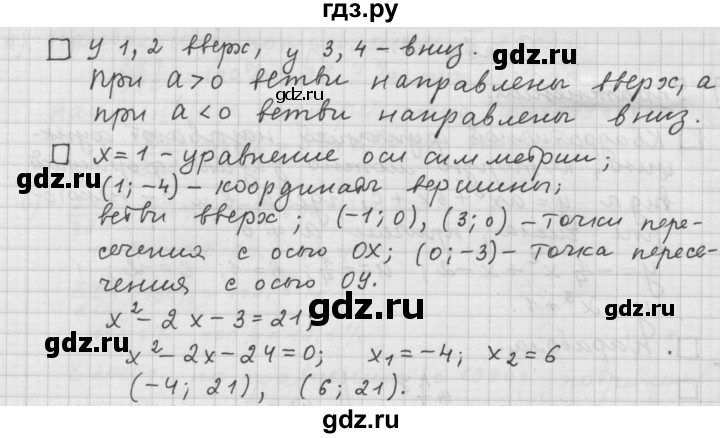 гдз.ру
У 1, 2 вверх, у 3, 4 – вниз.
При a > 0 ветви направлены вверх, а
gdz.ru
при a < 0 ветви направлены вниз.
x = 1 – уравнение оси симметрии;
gdz.ru gdz.ru
(1; –4) – координаты вершины;
ветви вверх; (–1; 0), (3; 0) – точки пере-
сечения с осью OX; (0; –3) – точка пересе-
чения с осью OY.
gdz.ru
x² – 2x – 3 = 21;
x² – 2x – 24 = 0; x₁ = –4; x₂ = 6
(–4; 21), (6; 21).
gdz.ru gdz.ru